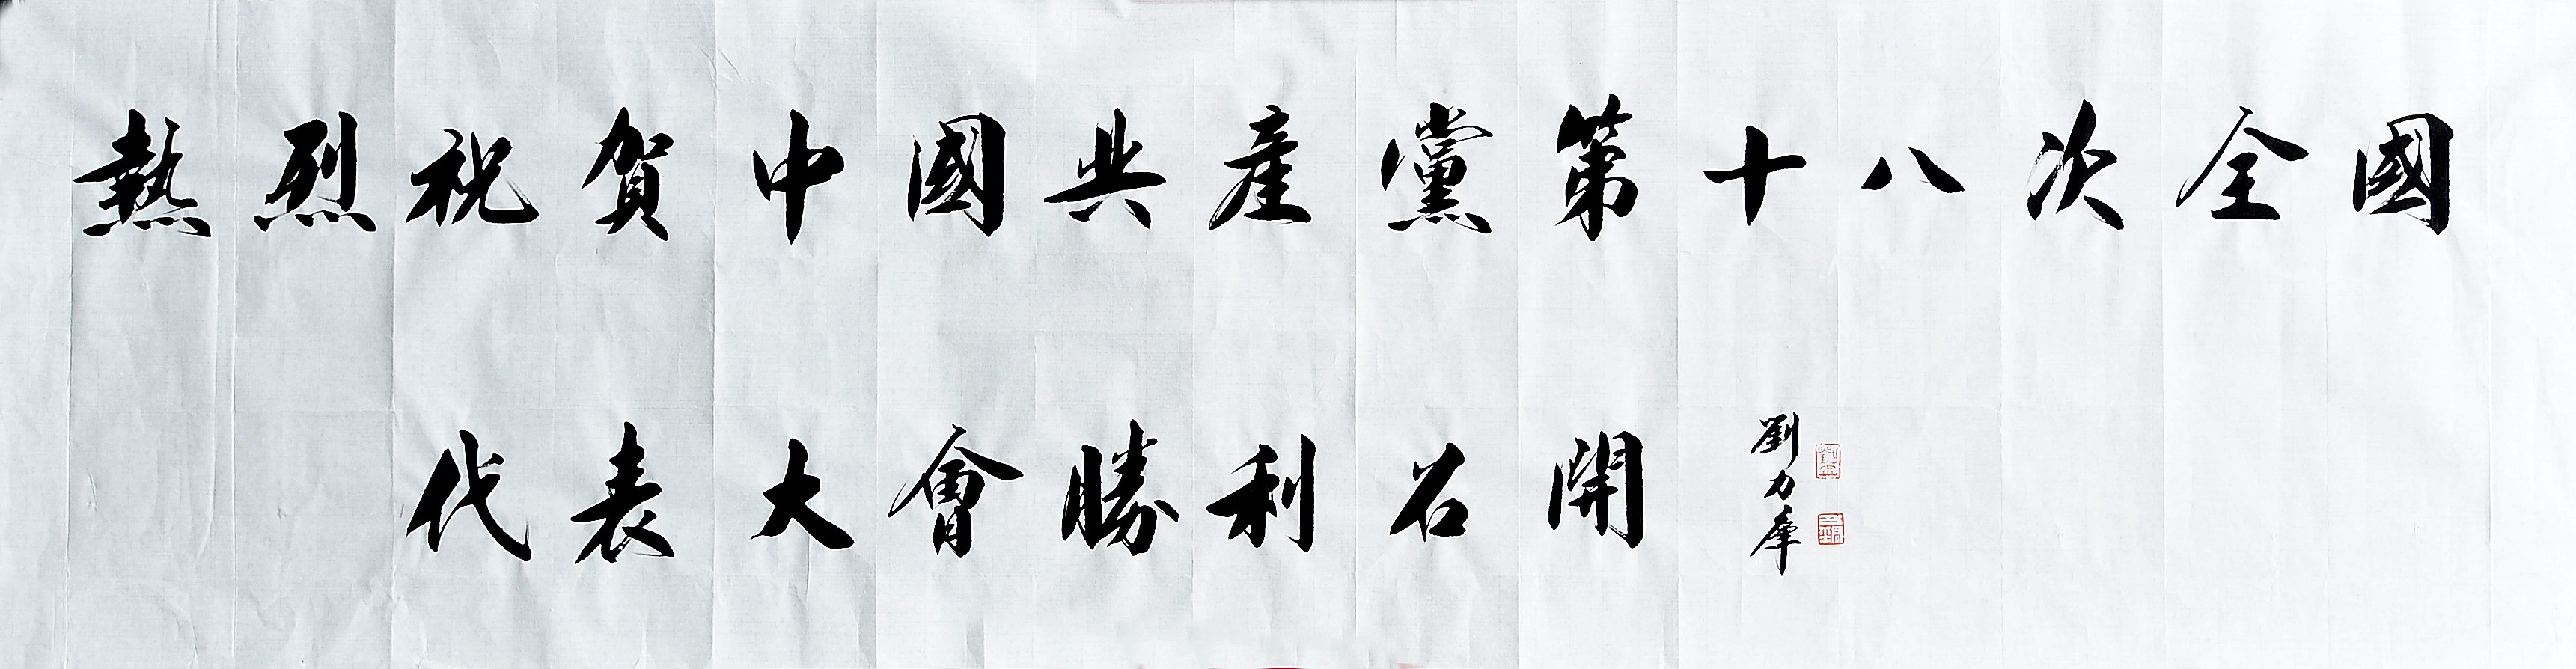 熱烈祝賀中國共産黨第十八次全國
代表大會勝利召開
劉力